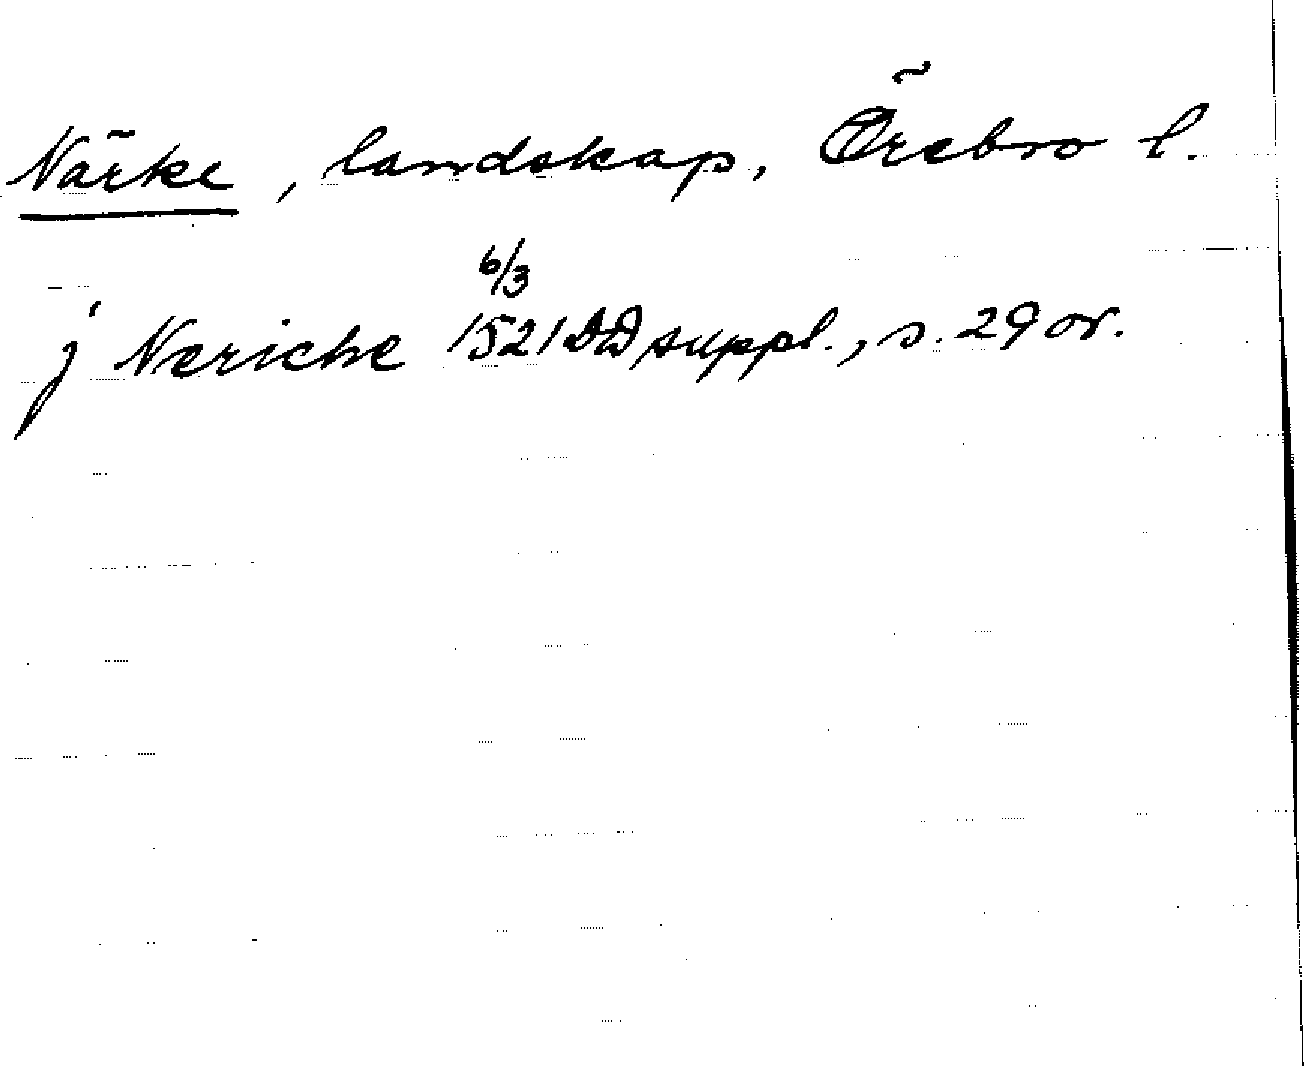 Närke, landskap, Örebro l.
6/3
j Neriche 1521 DD suppl., s. 29 or.